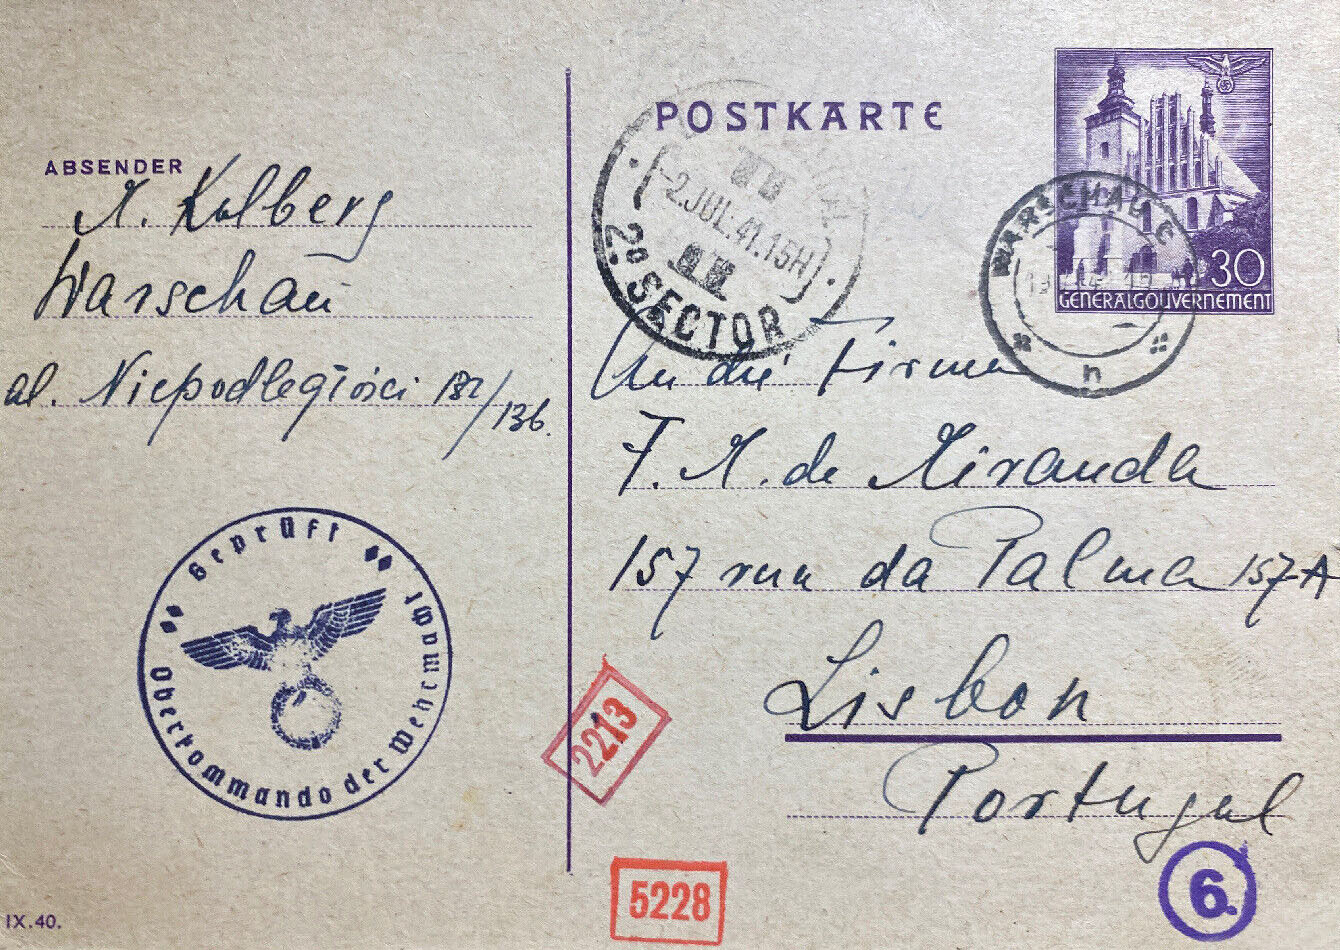 POSTKARTE
ABSENDER
M. Kolberg
Warschau
al. Niepodległości 132/136.
An die Firma
F. M. de Miranda
157 rua da Palma 157-A
Lisbon
Portugal
-2.JUL.41.15H
2º SECTOR
WARSCHAU C
h
30
GENERALGOUVERNEMENT
Geprüft
Oberkommando der Wehrmacht
2213
5228
6.
IX.40.